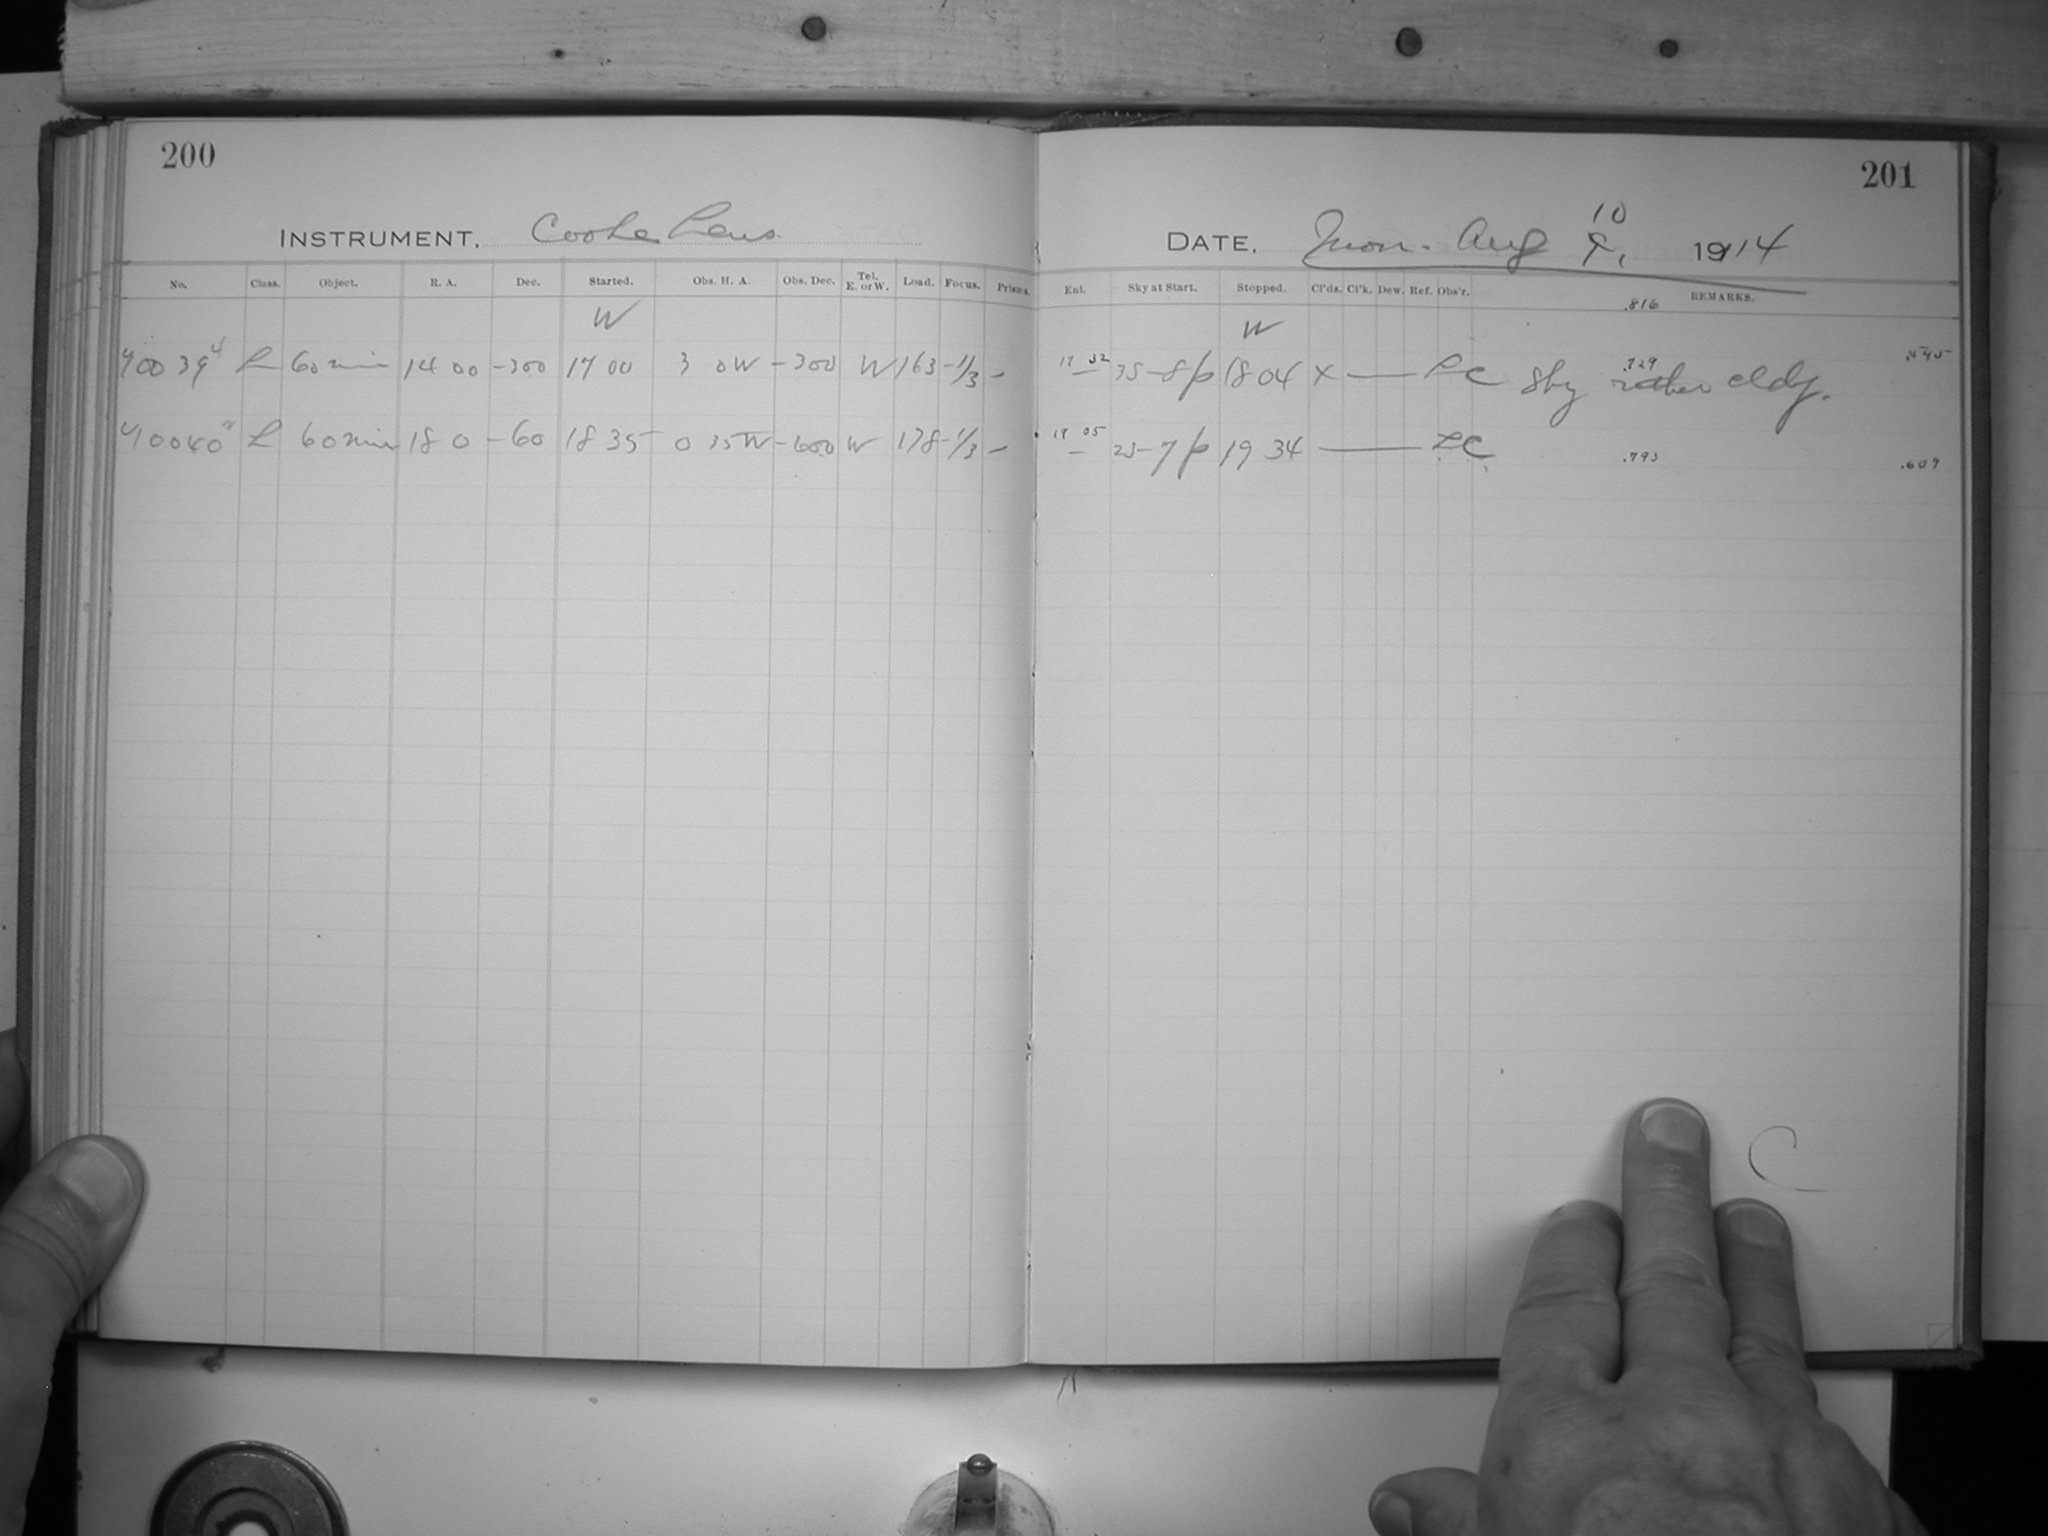 200
INSTRUMENT. Cooke Lens
No. Class. Object. R. A. Dec. Started. Obs. H. A. Obs. Dec. Tel. E. or W. Load. Focus. Prisms.
W
40039 L 60 min 14 00 -300 17 00 3 0W -300 W 163 -1/3 -
40040 L 60 min 18 0 -60 18 35 0 35W -600 W 178 -1/3 -
201
DATE. Mon. Aug 10 9, 1914
Enl. Sky at Start. Stopped. Cl'ds. Cl'k. Dew. Ref. Obs'r. REMARKS.
.816
W
17 32 35-8p 18 04 x — LC Sky rather cldy. .729
19 05 25-7p 19 34 — LC .793 .609
C